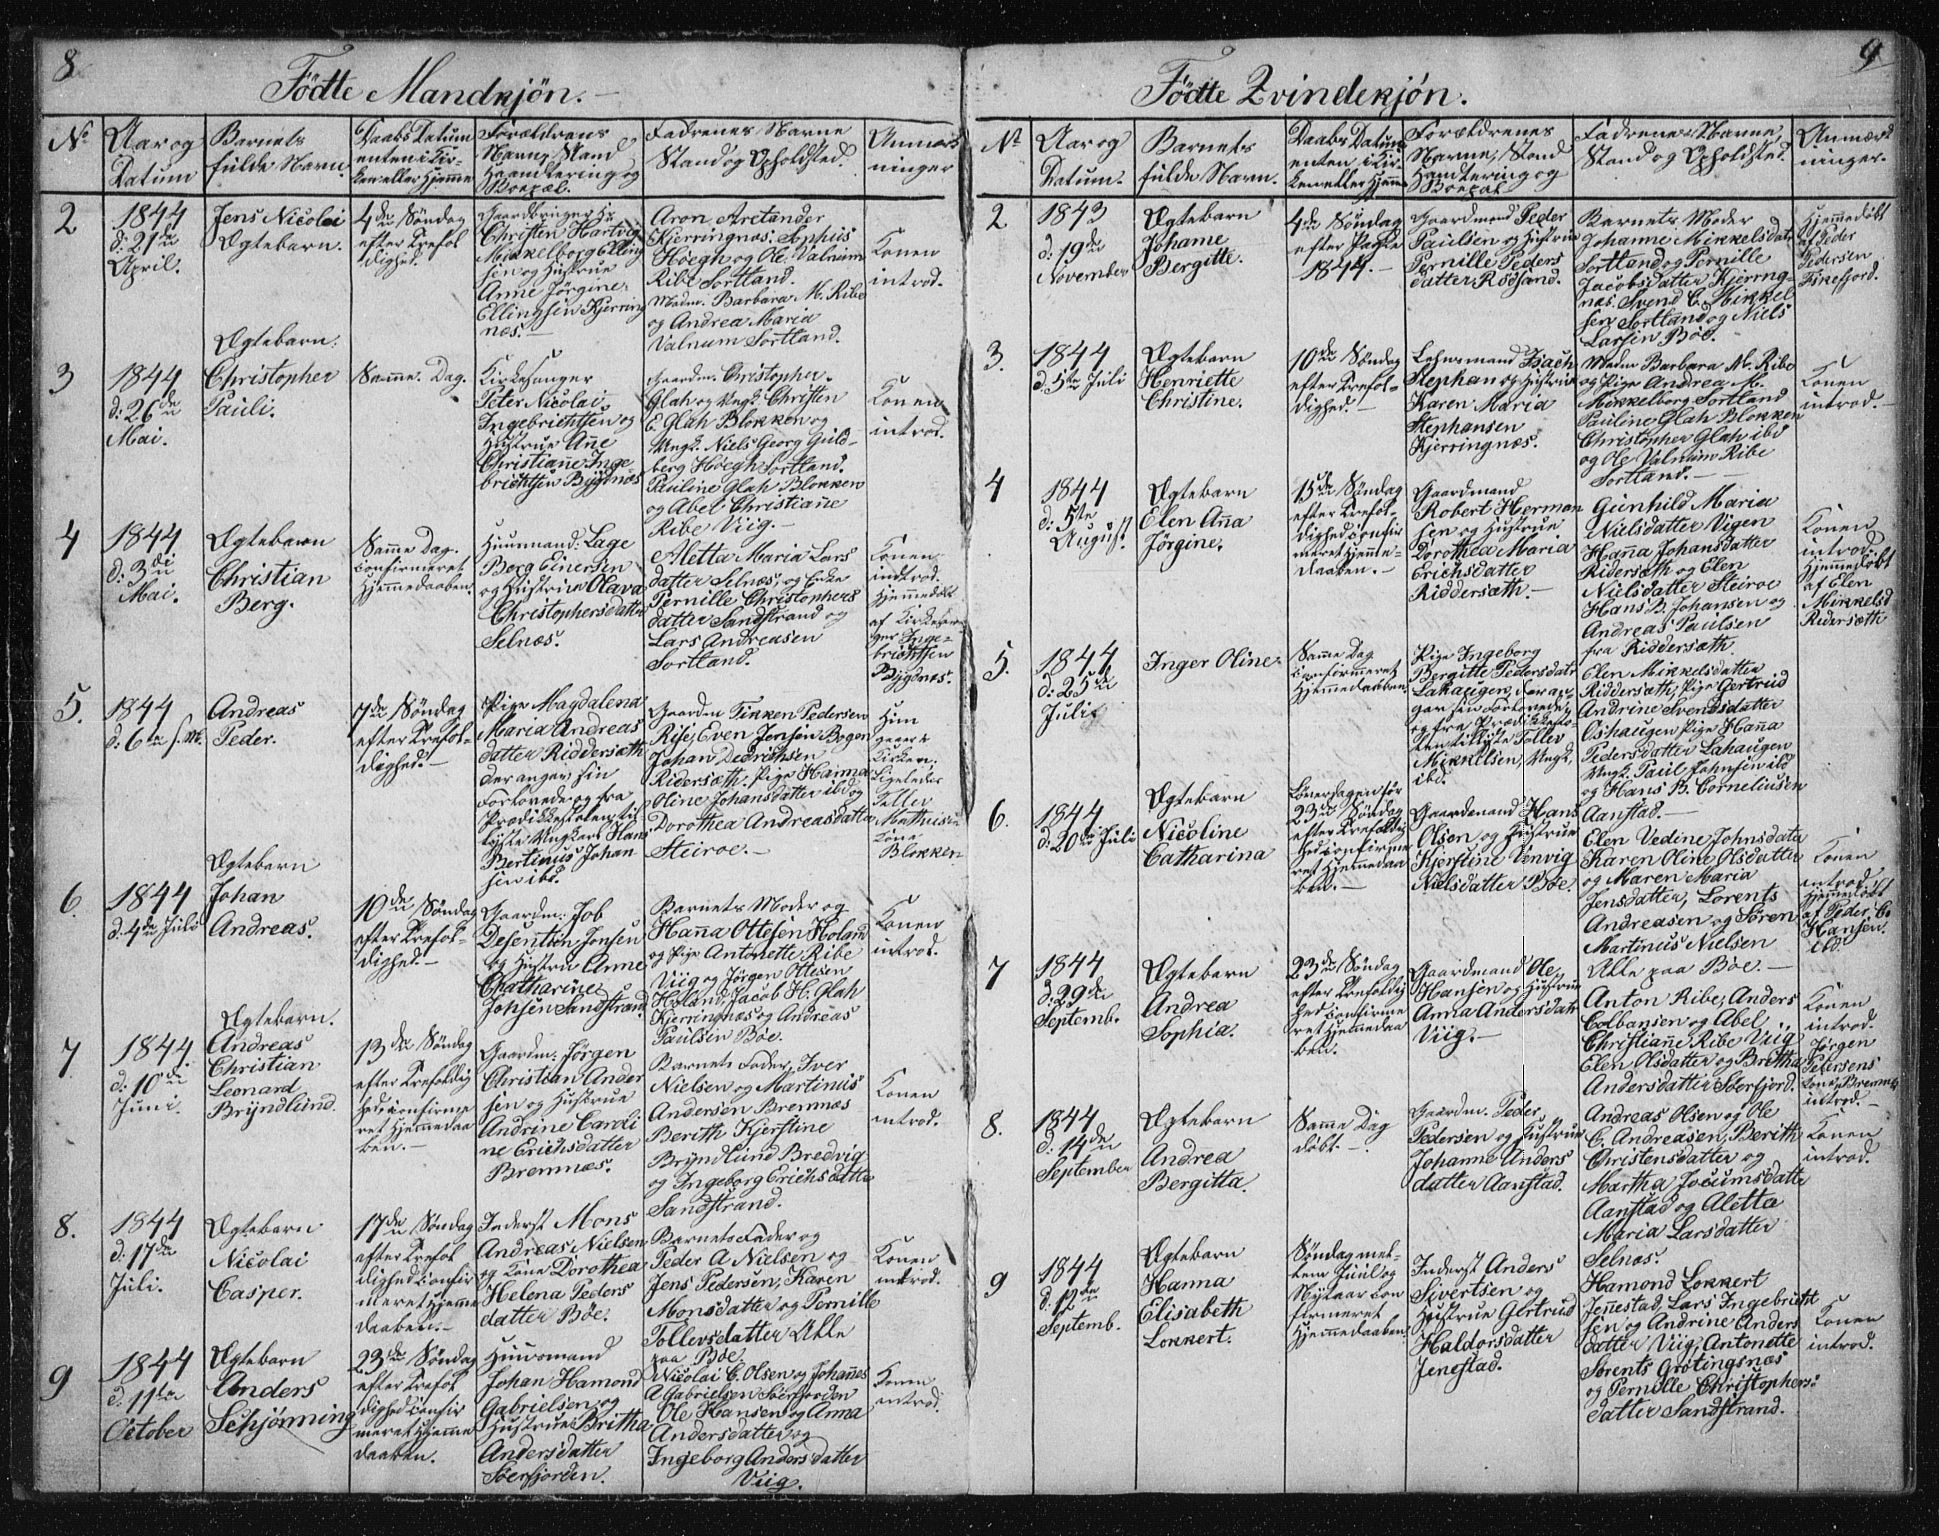 8
Fødte Mandkjön.
No
Aar og
Datum
Barnets
fulde Navn.
Daabs Datum
enten i Kir-
ken eller Hjemme
Forældrens
Navn, Stand
Haandtering og
Boepæl.
Fadrenes Navne
Stand og Opholdsted.
Anmærk
ninger
2
1844
d: 21de
April.
Jens Nicolai
Ægtebarn.
4de Søndag
efter Trefol
dighed.
Gaardbruger
Christen Hartvig
Mikkelborg Elling
sen og Hustrue
Anne Jørgine
Ellingsen Kjerring
næs.
Aron Aretander
Kjerringnæs, Sophus
Høegh og Ole Valnum
Ribe Sortland.
Madm. Barbara M. Ribe
og Andrea Maria
Valnum Sortland.
Konen
introd.
3
1844
d: 26de
Mai.
Ægtebarn:
Christopher
Pauli.
Samme Dag.
Kirkesanger
Peter Nicolai
Ingebrichtsen og
Hustrue Ane
Christiane Inge
brichtsen Bygdnæs
Gaardm. Christopher
Glah og Ungk. Christen
E. Glah Blokken og
Ungk. Niels Georg Guld-
berg Høegh Sortland.
Pauline Glah Blokken
og Abel Christiane
Ribe Viig.
Konen
introd.
4
1844
d: 3di
Mai.
Ægtebarn
Christian
Berg.
Samme Dag.
confirmeret
Hjemmedaaben.
Huusmand: Lage
Berg Einersen
og Hustrue Olava
Christophersdatter
Selnæs.
Aletta Maria Lars
datter Selnæs, og Enke
Pernille Christophers
datter Sandstrand og
Lars Andreasen
Sortland.
Konen
indtrod.
Hjemmedøbt
af Kirkesan-
ger Inge-
brichtsen
Bygdnæs.
5.
1844
d: 6te
Andreas
Peder.
7de Søndag
efter Trefol-
dighed.
Pige Magdalena
Maria Andreas
datter Riddersæth
der angav sin
Forlovede og fra
Prædikkestolen til
lyste Ungkarl Hans
Bertinus Johan
sen ibd.
Gaardm Finken Pedersen
Rise, Even Jensen Bogen
Johan Dedrichsen
Ridersæth, Pige Hanna
Oline Johansdatter ibd og
Dorothea Andreasdatter
Steiroe.
Kirken.
Ligeledes
Teller
Mathisens
Kone
Blokken
6.
1844
d: 4de Juli
Ægtebarn
Johan
Andreas.
10de Søndag
efter Trefol-
dighed.
Gaardm: Job
Desentius Jonsen
og Hustru Anne
Chatharine
Johsen Sandstrand
Barnets Moder og
Hana Ottesen Holand
og Pige Antonette Ribe
Viig og Jörgen Ottesen
Holand, Jacob H. Glah
Kjerringnæs og Andreas
Paulsen Böe.
Konen
introd.
7
1844.
d: 10de
Juni.
Ægtebarn.
Andreas
Christian
Leonard
Bryndlund.
13de Søndag
efter Trefoldig
hed confirme
ret Hjemmedaa
ben.
Gaardm: Jörgen
Christian Ander
sen og Hustrue
Andrine Caroli
ne Erichsdatter
Bremnæs.
Barnets Fader, Iver
Nielsen og Martinus
Andersen Bremnæs
Berith Kjerstine
Bryndlund Bredvig
og Ingeborg Erichsdatter
Sandstrand.
Konen
introd.
8.
1844
d: 17de
Juli.
Ægtebarn
Nicolai
Casper.
17de Søndag
efter Trefol
dighed confir
meret Hjemme
daaben.
Inderst Mons
Andreas Nielsen
og Kone Dorothea
Helena Peders
datter Böe.
Barnets Fader og
Peder A Nielsen og
Jens Pedersen, Karen
Monsdatter og Pernille
Tollevsdatter Alle
paa Böe
Konen
introd.
9
1844
d: 11te
October
Ægtebarn
Anders
Schjønning
23de Søndag
efter Trefol
dighed confir
meret Hjemme
daaben.
Huusmand
Johan Hamond
Gabrielsen og
Hustrue Britha
Andersdatter
Soerfjorden.
Nicolai C. Olsen og Johannes
A Gabrielsen Soerfjorden
Ole Hansen og Anna
Andersdatter og
Ingeborg Andersdatter
Viig.
Konen
introd.
9
Fødte Qvindekjön.
No
Aar og
Datum.
Barnets
fulde Navn.
Daabs Datum
enten i Kir
ken eller Hjemme
Forældrenes
Navne, Stand
Handtering og
Boepæl
Fadrenes Navne,
Stand og Opholdsted.
Anmærk
ninger.
2
1843
d: 19de
November
Ægtebarn
Johanne
Bergitte.
4de Søndag
efter Paaske
1844.
Gaardmand Peder
Paulsen og Hustrue
Pernille Peders
datter Rödsand.
Barnets Moder
Johanne Mikkelsdatr
Sortland og Pernille
Jacobsdatter Kjerring-
næs. Svend C. Mikkel
sen Sortland og Niels
Larsen Böe.
Hjemmedøbt
af Peder
Pedersen
Fiskefjord.
3.
1844
d: 5te Juli
Ægtebarn
Henriette
Christine.
10de Søndag
efter Trefol-
dighed.
Lehnsmand Isach
Stephan og Hustrue
Karen Maria
Stephansen
Kjerringnæs.
Madm Barbara M. Ribe
og Pige Andrea M.
Mikkelborg Sortland
Pauline Glah Blokken
Christopher Glah ibd
og Ole Valnum Ribe
Sortland.
Konen
introd.
4
1844
d: 5te
August.
Ægtebarn
Elen Ana
Jørgine.
15de Søndag
efter Trefol-
dighed confir
meret Hjemme-
daaben.
Gaardmand
Robert Herman
sen og Hustrue
Dorothea Maria
Erichsdatter
Riddersæth.
Gunhild Maria
Nielsdatter Vigen
Hana Johansdatter
Ridersæth og Elen
Nielsdatter Steiroe
Hans B. Johansen og
Andreas Paulsen
fra Riddersæth.
Konen
introd.
Hjemmedøbt
af Elen
Mikkelsd
Ridersæth
5.
1844
d: 25de
Juli
Inger Oline
Samme Dag
confirmeret
Hjemmedaaben
Pige Ingeborg
Bergitte Pedersdatr
Lahaugen, som an-
gav sin Forlovede
og fra Prædikkesto-
len tillyste Tollev
Mikkelsen, Ungk.
ibd.
Elen Mikkelsdatter
Riddersæth, Pige Gertrud
Andrine Svendsdatter
Oshaugen Pige Hana
Pedersdatter Lahaugen
Ungk. Paul Johnsen ibd
og Hans B. Corneliusen
Aanstad.
6.
1844
d: 20de Juli
Ægtebarn
Nicoline
Catharina
Löverdagen før
23de Søndag
efter Trefoldig
hed confirme
ret Hjemmedaa
ben.
Gaardmand Hans
Olsen og Hustrue
Kjerstine Venvig
Nielsdatter Böe.
Elen Vedine Johnsdatr
Karen Oline Olsdatter
og Maren Maria
Jensdatter, Lorents
Andreasen og Sören
Martinus Nielsen
Alle paa Böe.
Konen
introd.
Hjemmedøbt
af Peder C.
Hansen.
ibd.
7
1844
d: 29de
Septemb.
Ægtebarn
Andrea
Sophia.
23de Søndag
efter Trefoldig
hed confirme
ret Hjemmedaa
ben.
Gaardmand Ole
Hansen og Hustrue
Anna Andersdatr
Viig.
Anton Ribe, Anders
Colbansen og Abel
Christiane Ribe Viig
Elen Olsdatter og Britha
Andersdatter Soerfjord.
Konen
introd.
Jørgen
Petersens
Kone, Bremnes
introd.
8.
1844
d: 14de
September
Ægtebarn
Andrea
Bergitta.
Samme Dag
døbt.
Gaardm. Peder
Pedersen og Hustrue
Johanne Anders
datter Aanstad.
Andreas Olsen og Ole
C. Andreasen, Berith
Christensdatter og
Martha Jocumsdatter
Aanstad og Aletta
Maria Larsdatter
Selnæs.
Konen
introd.
9
1844
d: 12te
Septemb.
Ægtebarn
Hanna
Elisabeth
Lokkert.
Søndag mel-
lem Juul og
Nytaar con
firmeret
Hjemmedaaben
Inderst Anders
Sivertsen og
Hustrue Gertrud
Haldorsdatter
Jenestad.
Hamond Lokkert
Jenestad, Lars Ingebricht
sen og Andrine Anders
datter Viig, Antonette
Sorents Grøtingsnæs
og Pernille Christophers
datter Sandstrand.
Konen
introd.